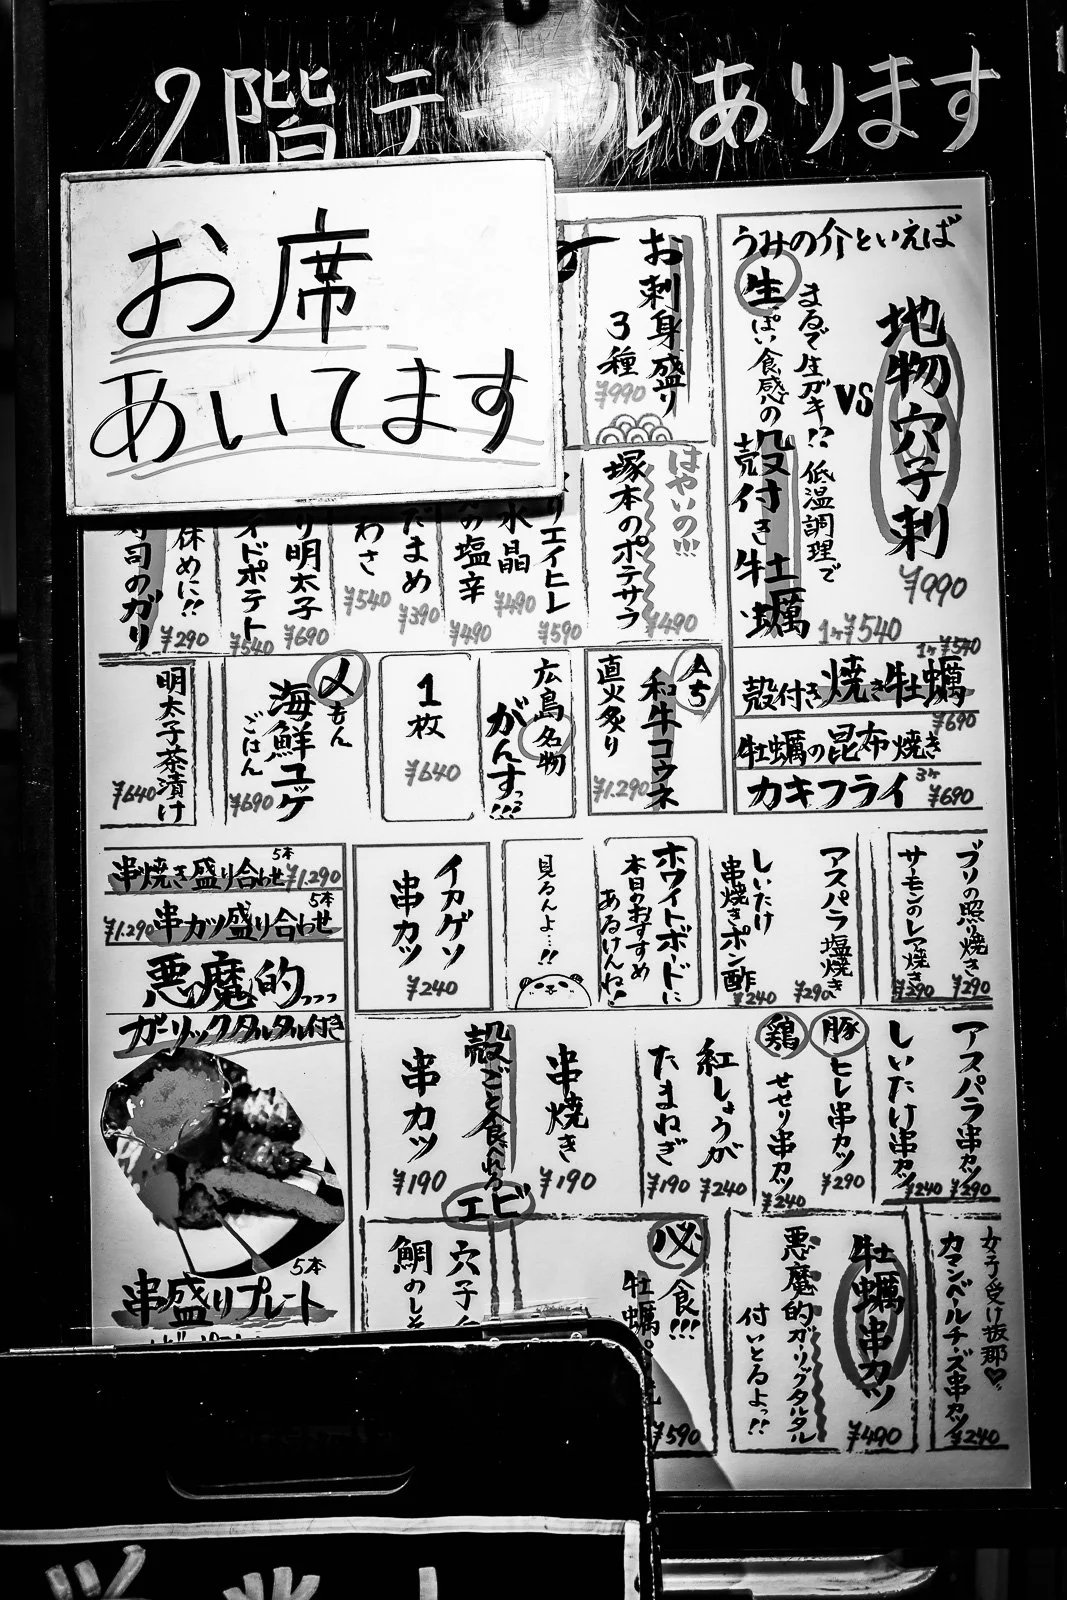 2階 テーブル あります
お席
あいてます
うみの介といえば
地物穴子刺
¥990
VS
まるで生ガキ!? 低温調理で
生っぽい食感の
殻付き牡蠣
1ヶ¥540
殻付き焼き牡蠣
1ヶ¥540
牡蠣の昆布焼き
¥690
カキフライ
3ヶ
¥690
お刺身盛り
3種
¥990
はやいの!!!
塚本のポテサラ
¥490
エイヒレ
¥590
水晶
¥490
の塩辛
¥490
だまめ
¥390
わさ
¥540
り明太子
¥690
イドポテト
¥540
休めに!!
寿司のガリ
¥290
和牛コウネ
直火炙り
¥1.290
広島名物
がんすっ!!!
1枚
¥640
〆もん
海鮮ユッケ
ごはん
¥690
明太子茶漬け
¥640
ブリの照り焼き
¥290
サーモンのレア焼き
¥290
アスパラ塩焼き
¥290
しいたけ
串焼きポン酢
¥240
ホワイトボードに
本日のおすすめ
あるけんね!
見るんよ…!!
イカゲソ
串カツ
¥240
串焼き盛り合わせ
5本
¥1.290
串カツ盛り合わせ
5本
¥1.290
悪魔的...
ガーリックタルタル付き
串盛りプレート
5本
アスパラ串カツ
¥290
しいたけ串カツ
¥240
豚
ヒレ串カツ
¥290
鶏
せせり串カツ
¥240
紅しょうが
¥240
たまねぎ
¥190
殻ごと食べれる
エビ
串焼き
¥190
串カツ
¥190
女子受け抜群♡
カマンベールチーズ串カツ
¥240
牡蠣串カツ
¥490
悪魔的ガーリックタルタル
付いとるよっ!!
必食!!!
牡蠣
¥590
穴子
鯛のしそ